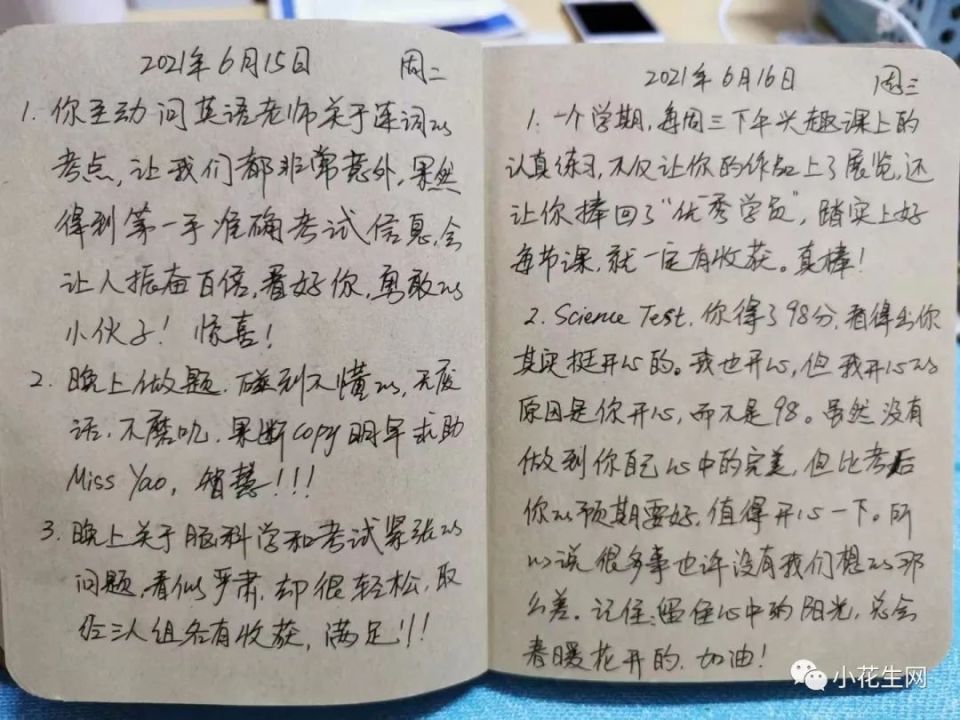 2021年6月15日 周二
1. 你主动问英语老师关于连词的
考点,让我们都非常意外,果然
得到第一手准确考试信息,会
让人振奋百倍,看好你,勇敢的
小伙子! 惊喜!
2. 晚上做题,碰到不懂的,无废
话,不磨叽,果断copy明年求助
Miss Yao,智慧!!!
3. 晚上关于脑科学和考试紧张的
问题,看似严肃,却很轻松,取
经三人组各有收获,满足!!!
2021年6月16日 周三
1. 一个学期,每周三下午兴趣课上的
认真练习,不仅让你的作品上了展览,还
让你捧回了“优秀学员”,踏实上好
每节课,就一定有收获。真棒!
2. Science Test,你得了98分,看得出你
其实挺开心的。我也开心,但我开心的
原因是你开心,而不是98。虽然没有
做到你自己心中的完美,但比考后
你的预期要好,值得开心一下。所
以说很多事也许没有我们想的那
么差。记住:留住心中的阳光,总会
春暖花开的,加油!
小花生网